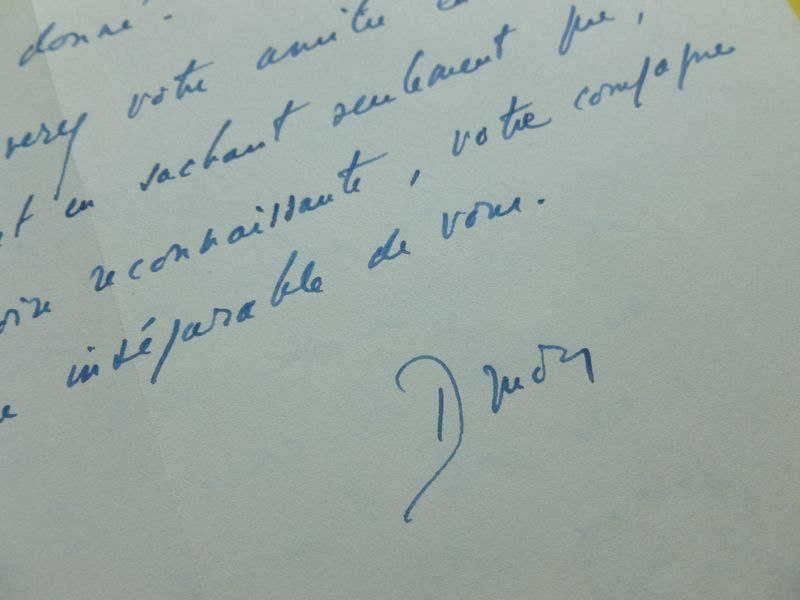 donné.
votre amitié
en sachant seulement que,
reconnaissante, votre compagne
inséparable de vous.